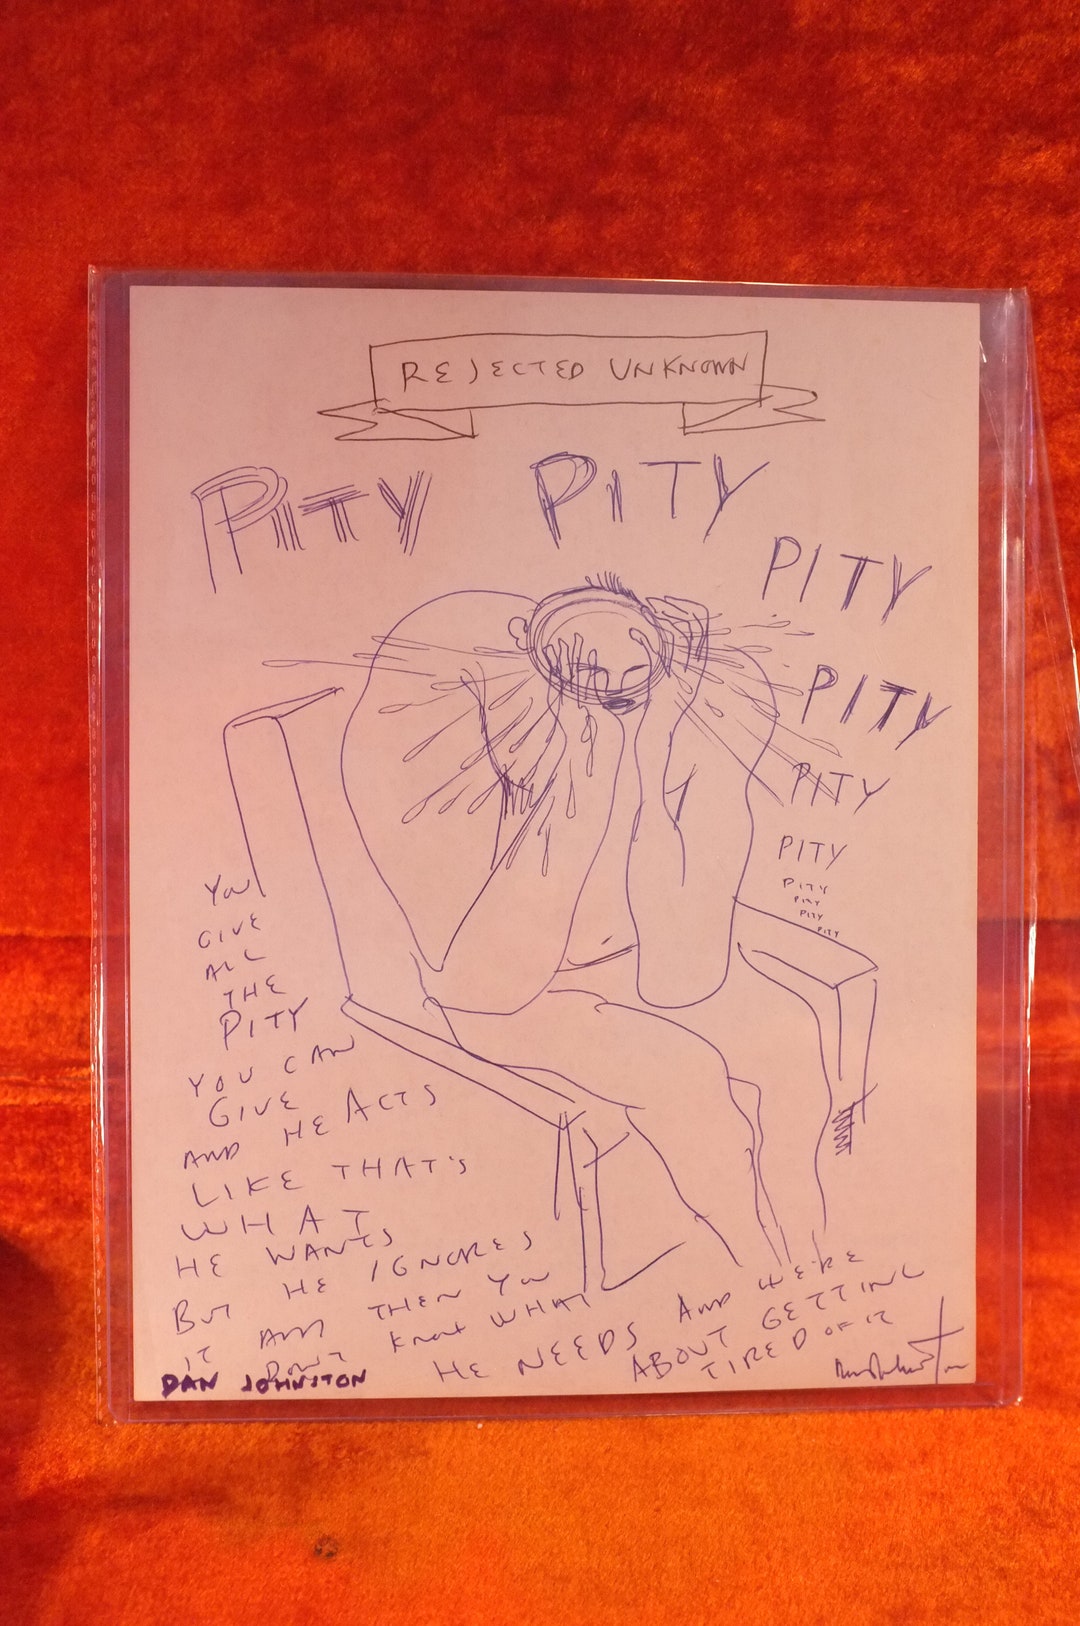 REJECTED UNKNOWN
PITY PITY
PITY
PITY
PITY
PITY
PITY
PITY
PITY
PITY
YOU
GIVE
ALL
THE
PITY
YOU CAN
GIVE
AND HE ACTS
LIKE THAT'S
WHAT
HE WANTS
BUT HE IGNORES
IT AND THEN YOU
DON'T KNOW WHAT
HE NEEDS AND WE'RE
ABOUT GETTING
TIRED OF IT
DAN JOHNSTON